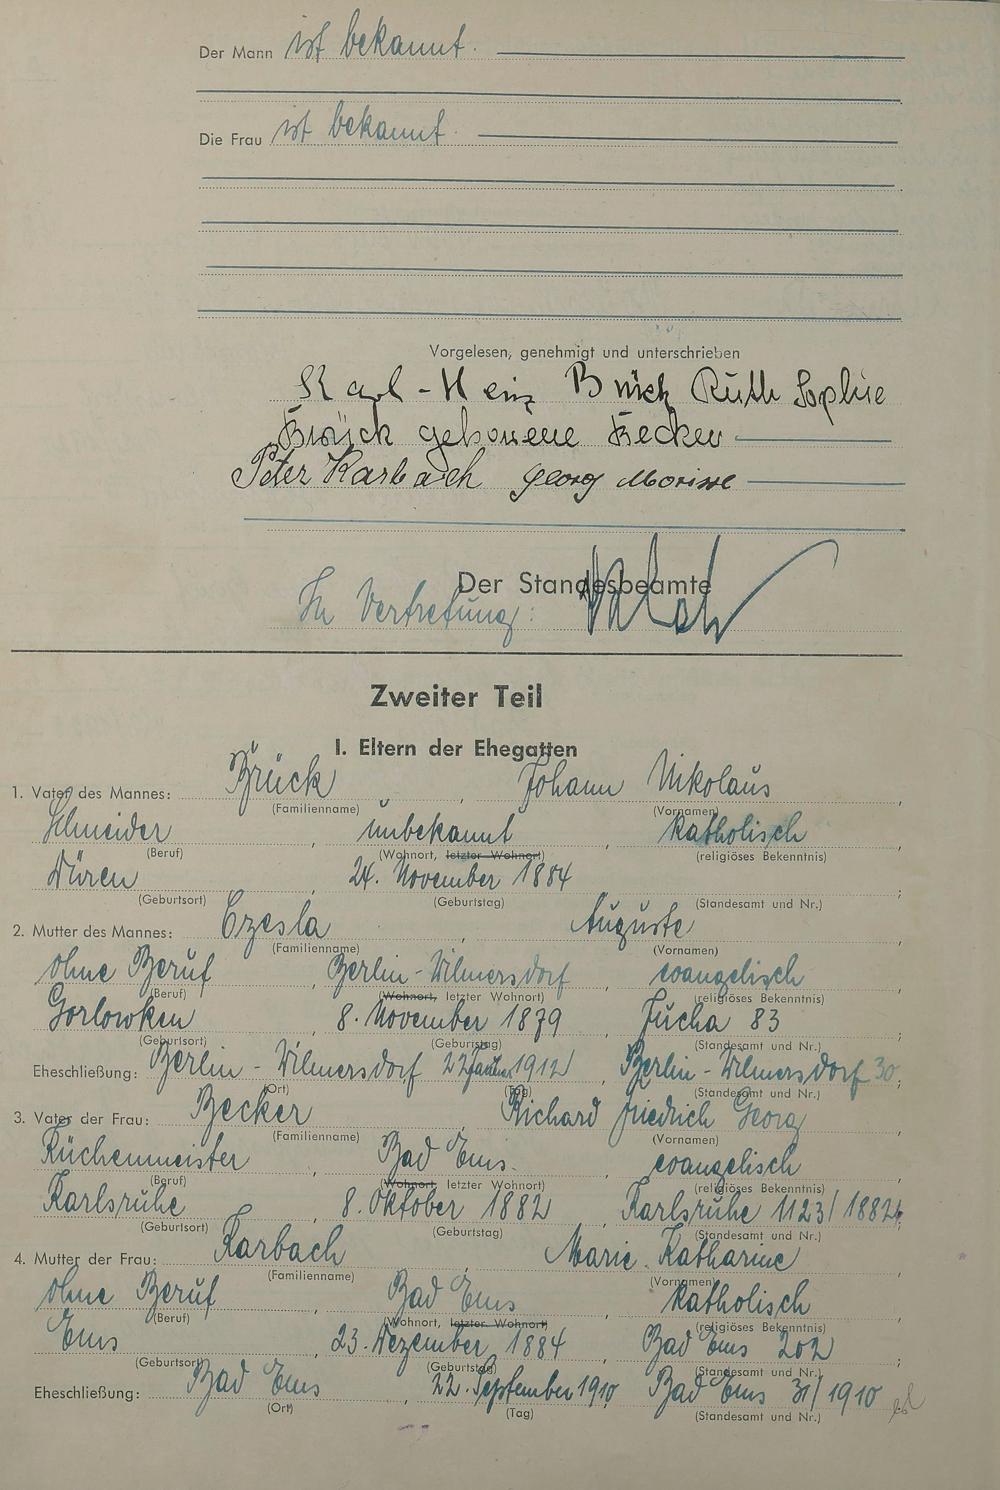 Der Mann ist bekannt.
Die Frau ist bekannt.
Vorgelesen, genehmigt und unterschrieben
Karl-Heinz Brück Ruth Sophie
Brück geborene Becker
Peter Karbach Georg Morisse
Der Standesbeamte
In Vertretung:
Zweiter Teil
I. Eltern der Ehegatten
1. Vater des Mannes: Brück, Johann Nikolaus,
(Familienname) (Vornamen)
Schneider, unbekannt, katholisch
(Beruf) (Wohnort, letzter Wohnort) (religiöses Bekenntnis)
Düren, 24. November 1884;
(Geburtsort) (Geburtstag) (Standesamt und Nr.)
2. Mutter des Mannes: Czesla, Auguste,
(Familienname) (Vornamen)
ohne Beruf, Berlin-Wilmersdorf, evangelisch
(Beruf) (Wohnort, letzter Wohnort) (religiöses Bekenntnis)
Gorlowken, 8. November 1879, Jucha 83
(Geburtsort) (Geburtstag) (Standesamt und Nr.)
Eheschließung: Berlin-Wilmersdorf 22 Januar 1912, Berlin-Wilmersdorf 30;
(Ort) (Tag) (Standesamt und Nr.)
3. Vater der Frau: Becker Richard Friedrich Georg,
(Familienname) (Vornamen)
Küchenmeister, Bad Ems., evangelisch
(Beruf) (Wohnort, letzter Wohnort) (religiöses Bekenntnis)
Karlsruhe, 8. Oktober 1882, Karlsruhe 1123/1882;
(Geburtsort) (Geburtstag) (Standesamt und Nr.)
4. Mutter der Frau: Karbach, Marie Katharine,
(Familienname) (Vornamen)
ohne Beruf, Bad Ems, katholisch
(Beruf) (Wohnort, letzter Wohnort) (religiöses Bekenntnis)
Ems, 23. Dezember 1884, Bad Ems 202;
(Geburtsort) (Geburtstag) (Standesamt und Nr.)
Eheschließung: Bad Ems, 22. September 1910 Bad Ems 31/1910
(Ort) (Tag) (Standesamt und Nr.)